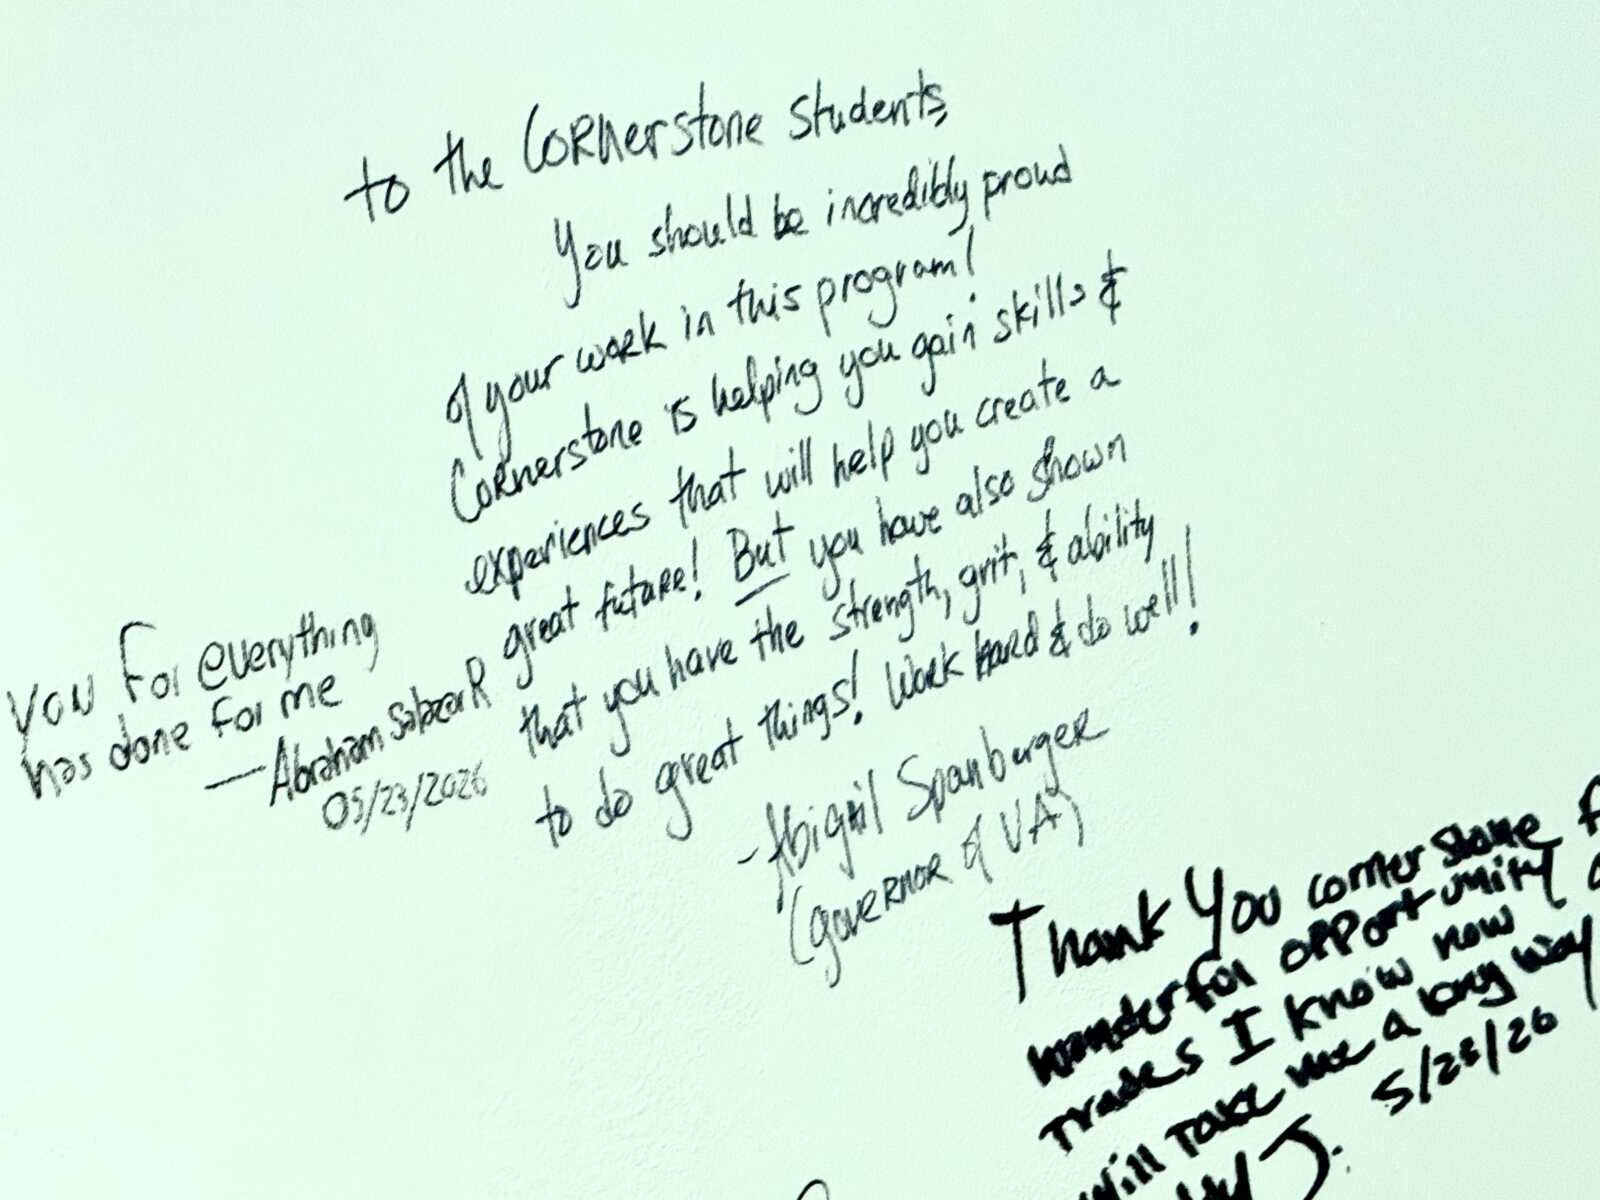 to the Cornerstone Students,
You should be incredibly proud
of your work in this program!
Cornerstone is helping you gain skills &
experiences that will help you create a
great future! But you have also shown
that you have the strength, grit, & ability
to do great things! Work hard & do well!
- Abigail Spanberger
(Governor of VA)
you for everything
has done for me
— Abraham Salazar R
05/23/2026
Thank You corner stone
wonderful opportunity
trades I know now
will take me a long way
J. 5/23/26